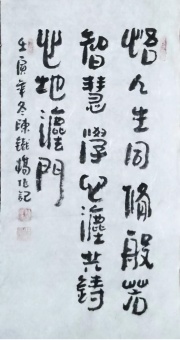 悟人生同脩般若
智慧學心灋共鑄
心地灋門
壬寅年冬陳鐵楊作記